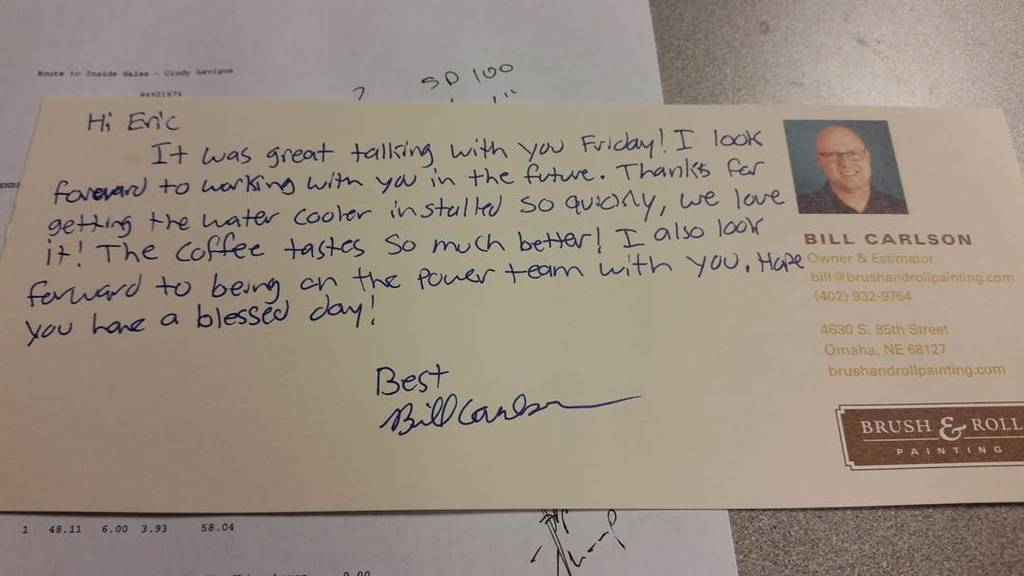 Route to Inside Sales - Cindy Lavigne
84921571
?
SD 100
Hi Eric
It was great talking with you Friday! I look
forward to working with you in the future. Thanks for
getting the water cooler installed so quickly, we love
it! The coffee tastes so much better! I also look
forward to being on the power team with you. Hope
you have a blessed day!
Best
Bill Carlson
BILL CARLSON
Owner & Estimator
bill@brushandrollpainting.com
(402) 932-9764
4630 S. 85th Street
Omaha, NE 68127
brushandrollpainting.com
BRUSH & ROLL
PAINTING
1 48.11 6.00 3.93 58.04
0.00